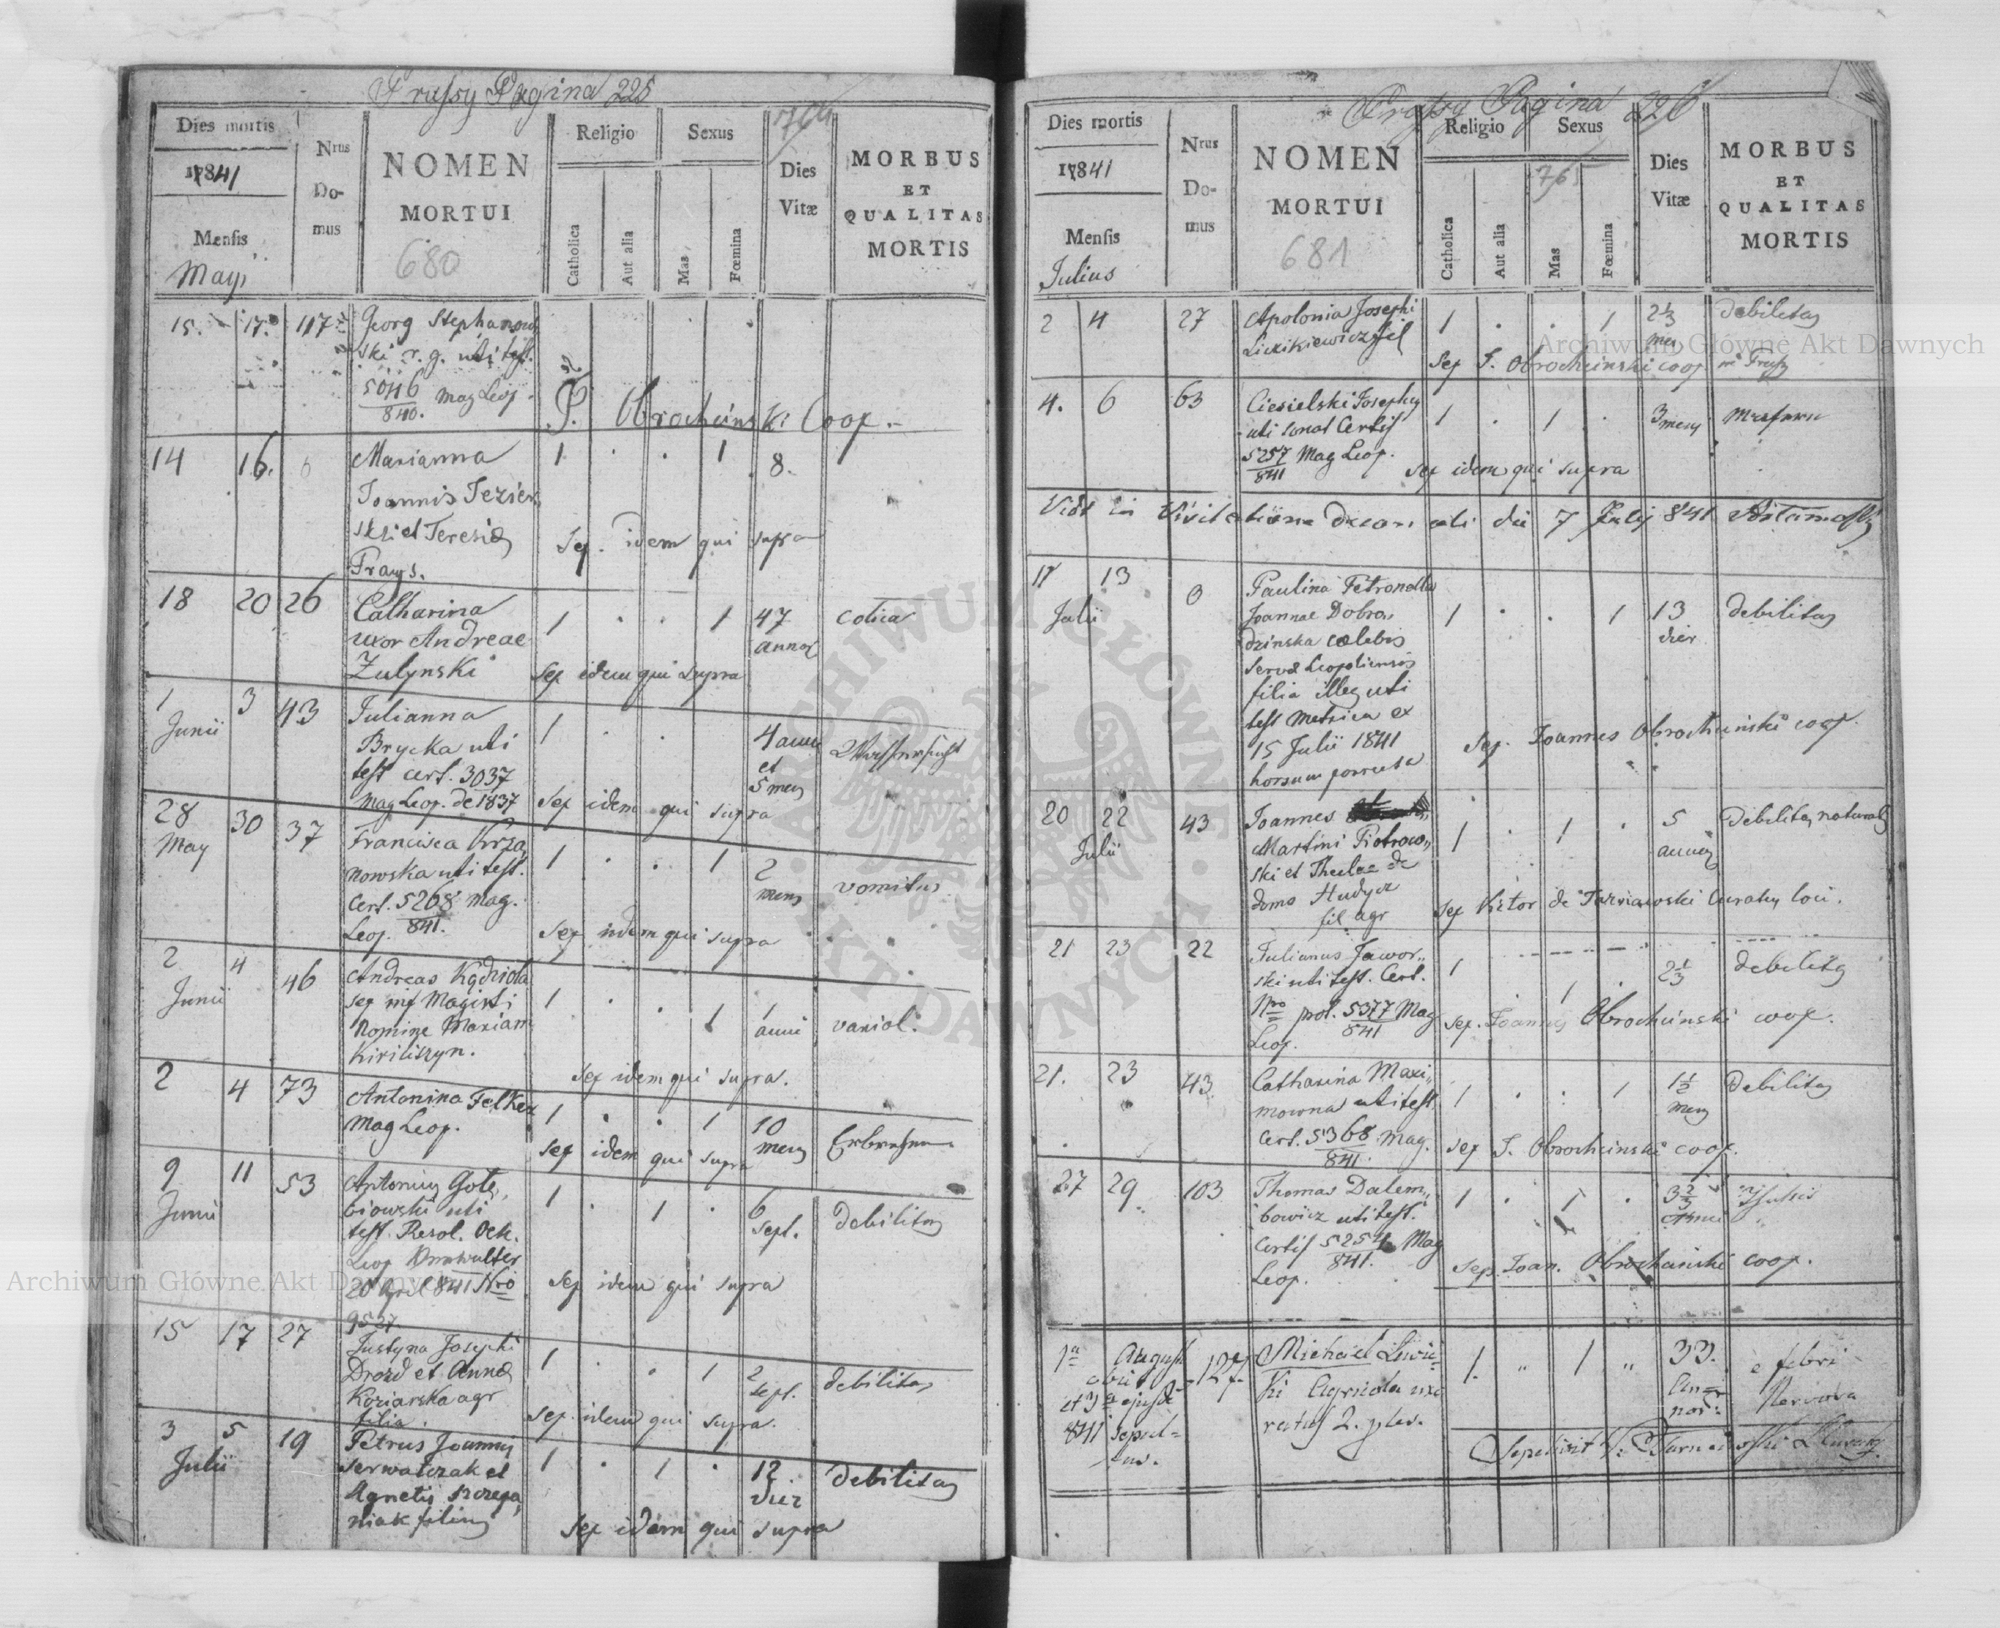 Prussy Pagina 225
764
Dies mortis
1841
Mensis
Maji
Nrus
Do-
mus
NOMEN
MORTUI
680
Religio
Catholica
Aut alia
Sexus
Mas
Fœmina
Dies
Vitæ
MORBUS
ET
QUALITAS
MORTIS
15. 17. 117
Georg Stephanow
ski r. g. uti test.
5046
840. Mag Leop.
P. Obrochcinski Coop.
14 16. 6
Marianna
Joannis Jezier
ski et Teresiæ
Prays.
1 . . 1 8.
Sep. idem qui supra
18 20 26
Catharina
uxor Andreae
Zulynski
1 . . 1 47
annor
colica
Sep idem qui supra
1 3 43
Junii
Julianna
Brycka uti
test cert. 3037
Mag Leop. de 1837
1 . .
4 anni
et
5 mens
Wassersucht
Sep idem qui supra
28 30 37
May
Francisca Krza
nowska uti test.
Cert. 5268 Mag.
Leop. 841.
1 . . 1 2
mens
vomitus
Sep idem qui supra
2 4 46
Junii
Andreas Kądziola
Nomine Mariam
Kiriliszyn.
1 . . 1 1
anni
variol.
Sep idem qui supra.
2 4 73
Antonina Felker
Mag Leop.
1 . . 1 10
mens
Erbrechen
Sep idem qui supra
9 11 53
Junii
Antonius Gołę
biowski uti
test. Resol.
Leop
20 April 841 Nro
9527
1 . 1 . 6
Sept.
debilitas
Sep idem qui supra
15 17 27
Justyna Josephi
Drozd et Annæ
Koziarska agr
filia.
1 . . 1 2
Sept.
debilitas
Sep. idem qui supra.
3 5 19
Julii
Petrus Joannis
Serwatczak et
Agnetis Szczepa
niak filius
1 . 1 . 12
dier
debilitas
Sep idem qui supra
Prussy Pagina 226
765
Dies mortis
1841
Mensis
Julius
Nrus
Do-
mus
NOMEN
MORTUI
681
Religio
Catholica
Aut alia
Sexus
Mas
Fœmina
Dies
Vitæ
MORBUS
ET
QUALITAS
MORTIS
2 4 27
Apolonia Josephi
fil
1 . . 1 2 1/3
mens
debilitas
Sep J. Obrochcinski coop
4. 6 63
Ciesielski Josephus
uti sonat Certif
5257 Mag Leop.
841
1 . 1 . 3
mens
Sep idem qui supra
Vidi in Visitatione Decanali die 7 Julij 841
11 13 0
Julii
Paulina Petronella
Joannae Dobro
dzinska cælebis
Servæ Leopoliensis
filia illeg uti
test Metrica ex
15 Julii 1841
horsum porrecta
1 . . 1 13
dier
debilitas
Sep. Joannes Obrochcinski coop.
20 22 43
Julii
Joannes
Martini Piotrow
ski et Theclæ de
domo Hudycz
fil agr
1 . 1 . 5
annor
Debilitas naturalis
Sep Victor de Tarnawski Curatus loci.
21 23 22
Julianus Jawor
ski uti test. Cert.
Nro prot. 5377 Mag
841
Leop.
1 . 1 . 2 1/3
debilitas
Sep. Joannes Obrochcinski coop.
21. 23 43
Catharina Maxi
mowna uti test
Cert. 5368 Mag.
841.
1 . . 1 1 1/2
mens
Debilitas
Sep J. Obrochcinski coop.
27 29 103
Thomas Dalem
bowicz uti test.
Certif 5254 Mag
841.
Leop.
1 . 1 . 3 2/3
Anni
Sep. Joan. Obrochcinski coop.
1a August 127
obiit
et 3a ejusd
841 sepul
tus.
Michael Lewic
ki Agricola uxo
ratus
1. " 1 " 33.
An
nor:
e febri
Nervosa
Sepelivit V. Tarnawski
ARCHIWUM GŁÓWNE AKT DAWNYCH
Archiwum Główne Akt Dawnych
Archiwum Główne Akt Dawnych